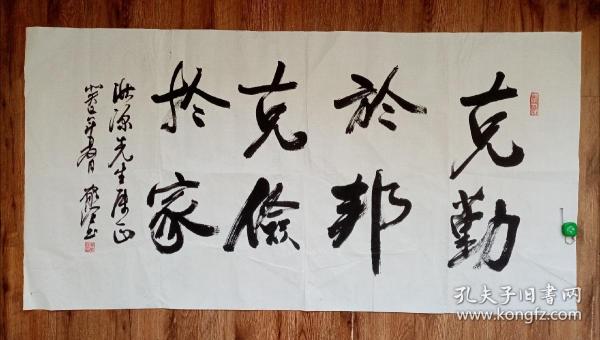 克勤
於邦
克儉
於家
先生屬正
癸年春月
书
孔夫子旧书网
www.kongfz.com